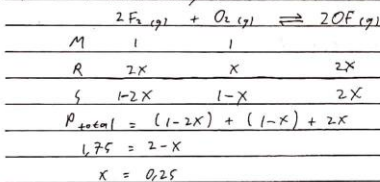 2 F₂ (g) + O₂ (g) ⇌ 2OF (g)
M 1 1
R 2x x 2x
S 1-2x 1-x 2x
P total = (1-2x) + (1-x) + 2x
1,75 = 2-x
x = 0,25